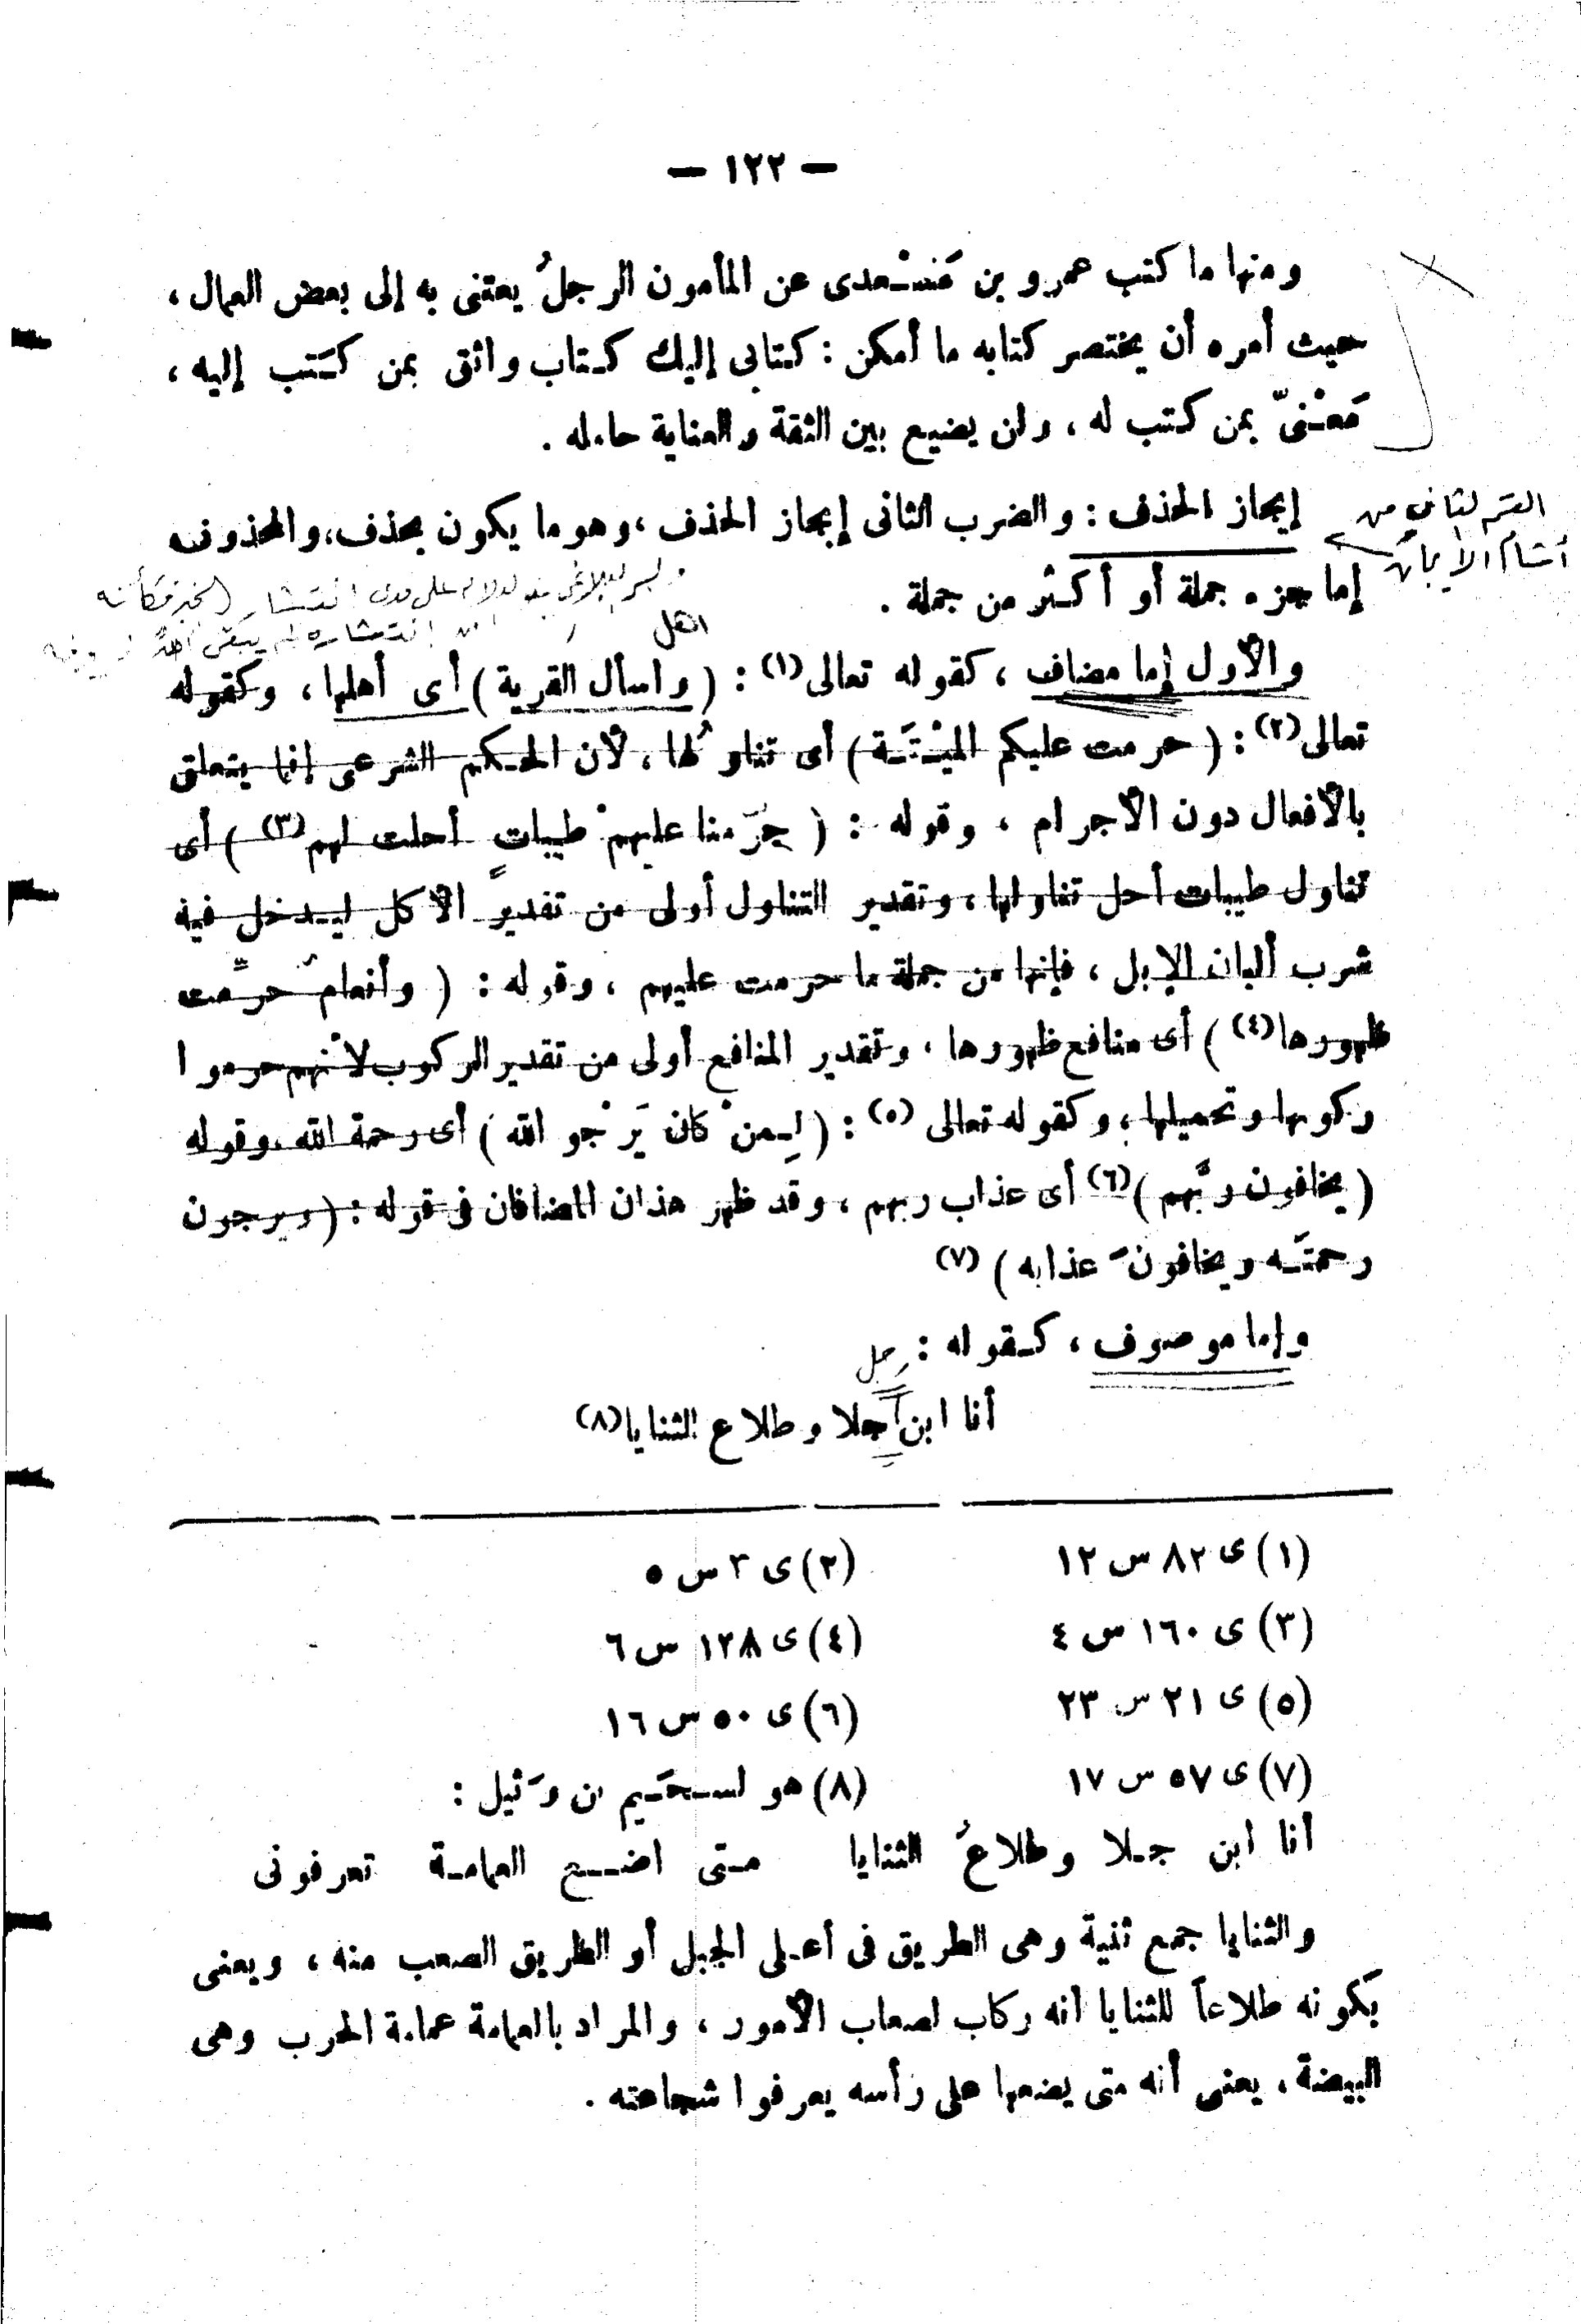 — ١٢٢ —
ومنها ما كتب عمرو بن مَسْعدى عن المأمون الرجلُ يعتنى به إلى بعض العمال ،
حيث أمره أن يختصر كتابه ما أمكن : كتابى إليك كتاب واثق بمن كَتب إليه ،
مَعْنىّ بمن كتب له ، ولن يضيع بين الثقة والعناية حامله .
القسم الثاني من
أقسام الايجاز
إيجاز الحذف : والضرب الثانى إيجاز الحذف ، وهو ما يكون بحذف ، والمحذوف
إما جزء جملة أو أكثر من جملة .
على مدى انتشار الخبر فكأنه
انتشاره لم يبقى أحد
اهل
والأول إما مضاف ، كقوله تعالى (١) : ( واسأل القرية ) أى أهلها ، وكقوله
تعالى (٢) : ( حرمت عليكم الميْتَة ) أى تناولُها ، لأن الحكم الشرعى إنما يتعلق
بالأفعال دون الأجرام ، وقوله : ( حرّمنا عليهمْ طيباتٍ أحلت لهم (٣) ) أى
تناول طيبات أحل تناولها ، وتقدير التناول أولى من تقدير الأكل ليدخل فيه
شرب ألبان الإبل ، فإنها من جملة ما حرمت عليهم ، وقوله : ( وأنعامٌ حرِّمت
ظهورها (٤) ) أى منافع ظهورها ، وتقدير المنافع أولى من تقدير الركوب لأنهم حرموا
ركوبها وتحميلها ، وكقوله تعالى (٥) : ( لِمنْ كان يَرْجو الله ) أى رحمة الله ، وقوله
( يخافون ربَّهم ) (٦) أى عذاب ربهم ، وقد ظهر هذان المضافان فى قوله : ( ويرجون
رحمتَه ويخافونَ عذابه ) (٧)
وإما موصوف ، كقوله :
رجل
أنا ابن جلا وطلاع الثنايا (٨)
(١) ى ٨٢ س ١٢ (٢) ى ٣ س ٥
(٣) ى ١٦٠ س ٤ (٤) ى ١٣٨ س ٦
(٥) ى ٢١ س ٣٣ (٦) ى ٥٠ س ١٦
(٧) ى ٥٧ س ١٧ (٨) هو لسحَيم بن وَثيل :
أنا ابن جلا وطلاعُ الثنايا متى اضع العمامة تعرفونى
والثنايا جمع ثنية وهى الطريق فى أعلى الجبل أو الطريق الصعب منه ، ويعنى
بكونه طلاعاً للثنايا أنه ركاب لصعاب الأمور ، والمراد بالعمامة عمامة الحرب وهى
البيضة ، يعنى أنه متى يضعها على رأسه يعرفوا شجاعته .